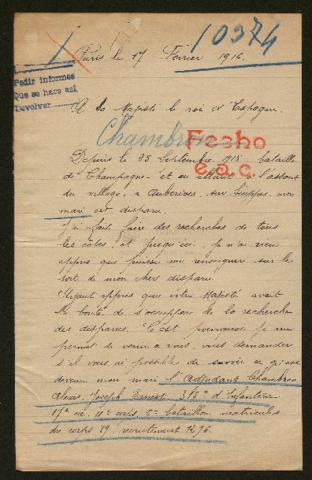 10374
Paris le 17 Février 1916.
Pedir informes
Que se hace así
Devolver
A Sa Majesté le roi d'Espagne
Chambron
Fecho
e.s.c.
Depuis le 25 Septembre 1915 bataille
de Champagne et en allant à l'assaut
du village d'Auberives sur Suippes, mon
mari est disparu.
J'ai fait faire des recherches de tous
les côtés et jusqu'ici je n'ai rien
appris qui puisse me renseigner sur le
sort de mon cher disparu.
Ayant appris que votre Majesté avait
la bonté de s'occuper de la recherche
des disparus. C'est pourquoi je me
permet de venir a vous, vous demander
s'il vous est possible de savoir ce qu'est
devenu mon mari l'adjudant Chambron
Joseph Ernest, 315e d'Infanterie
17e cie, 4e corps, 5e bataillon matricule
du corps 19, recrutement